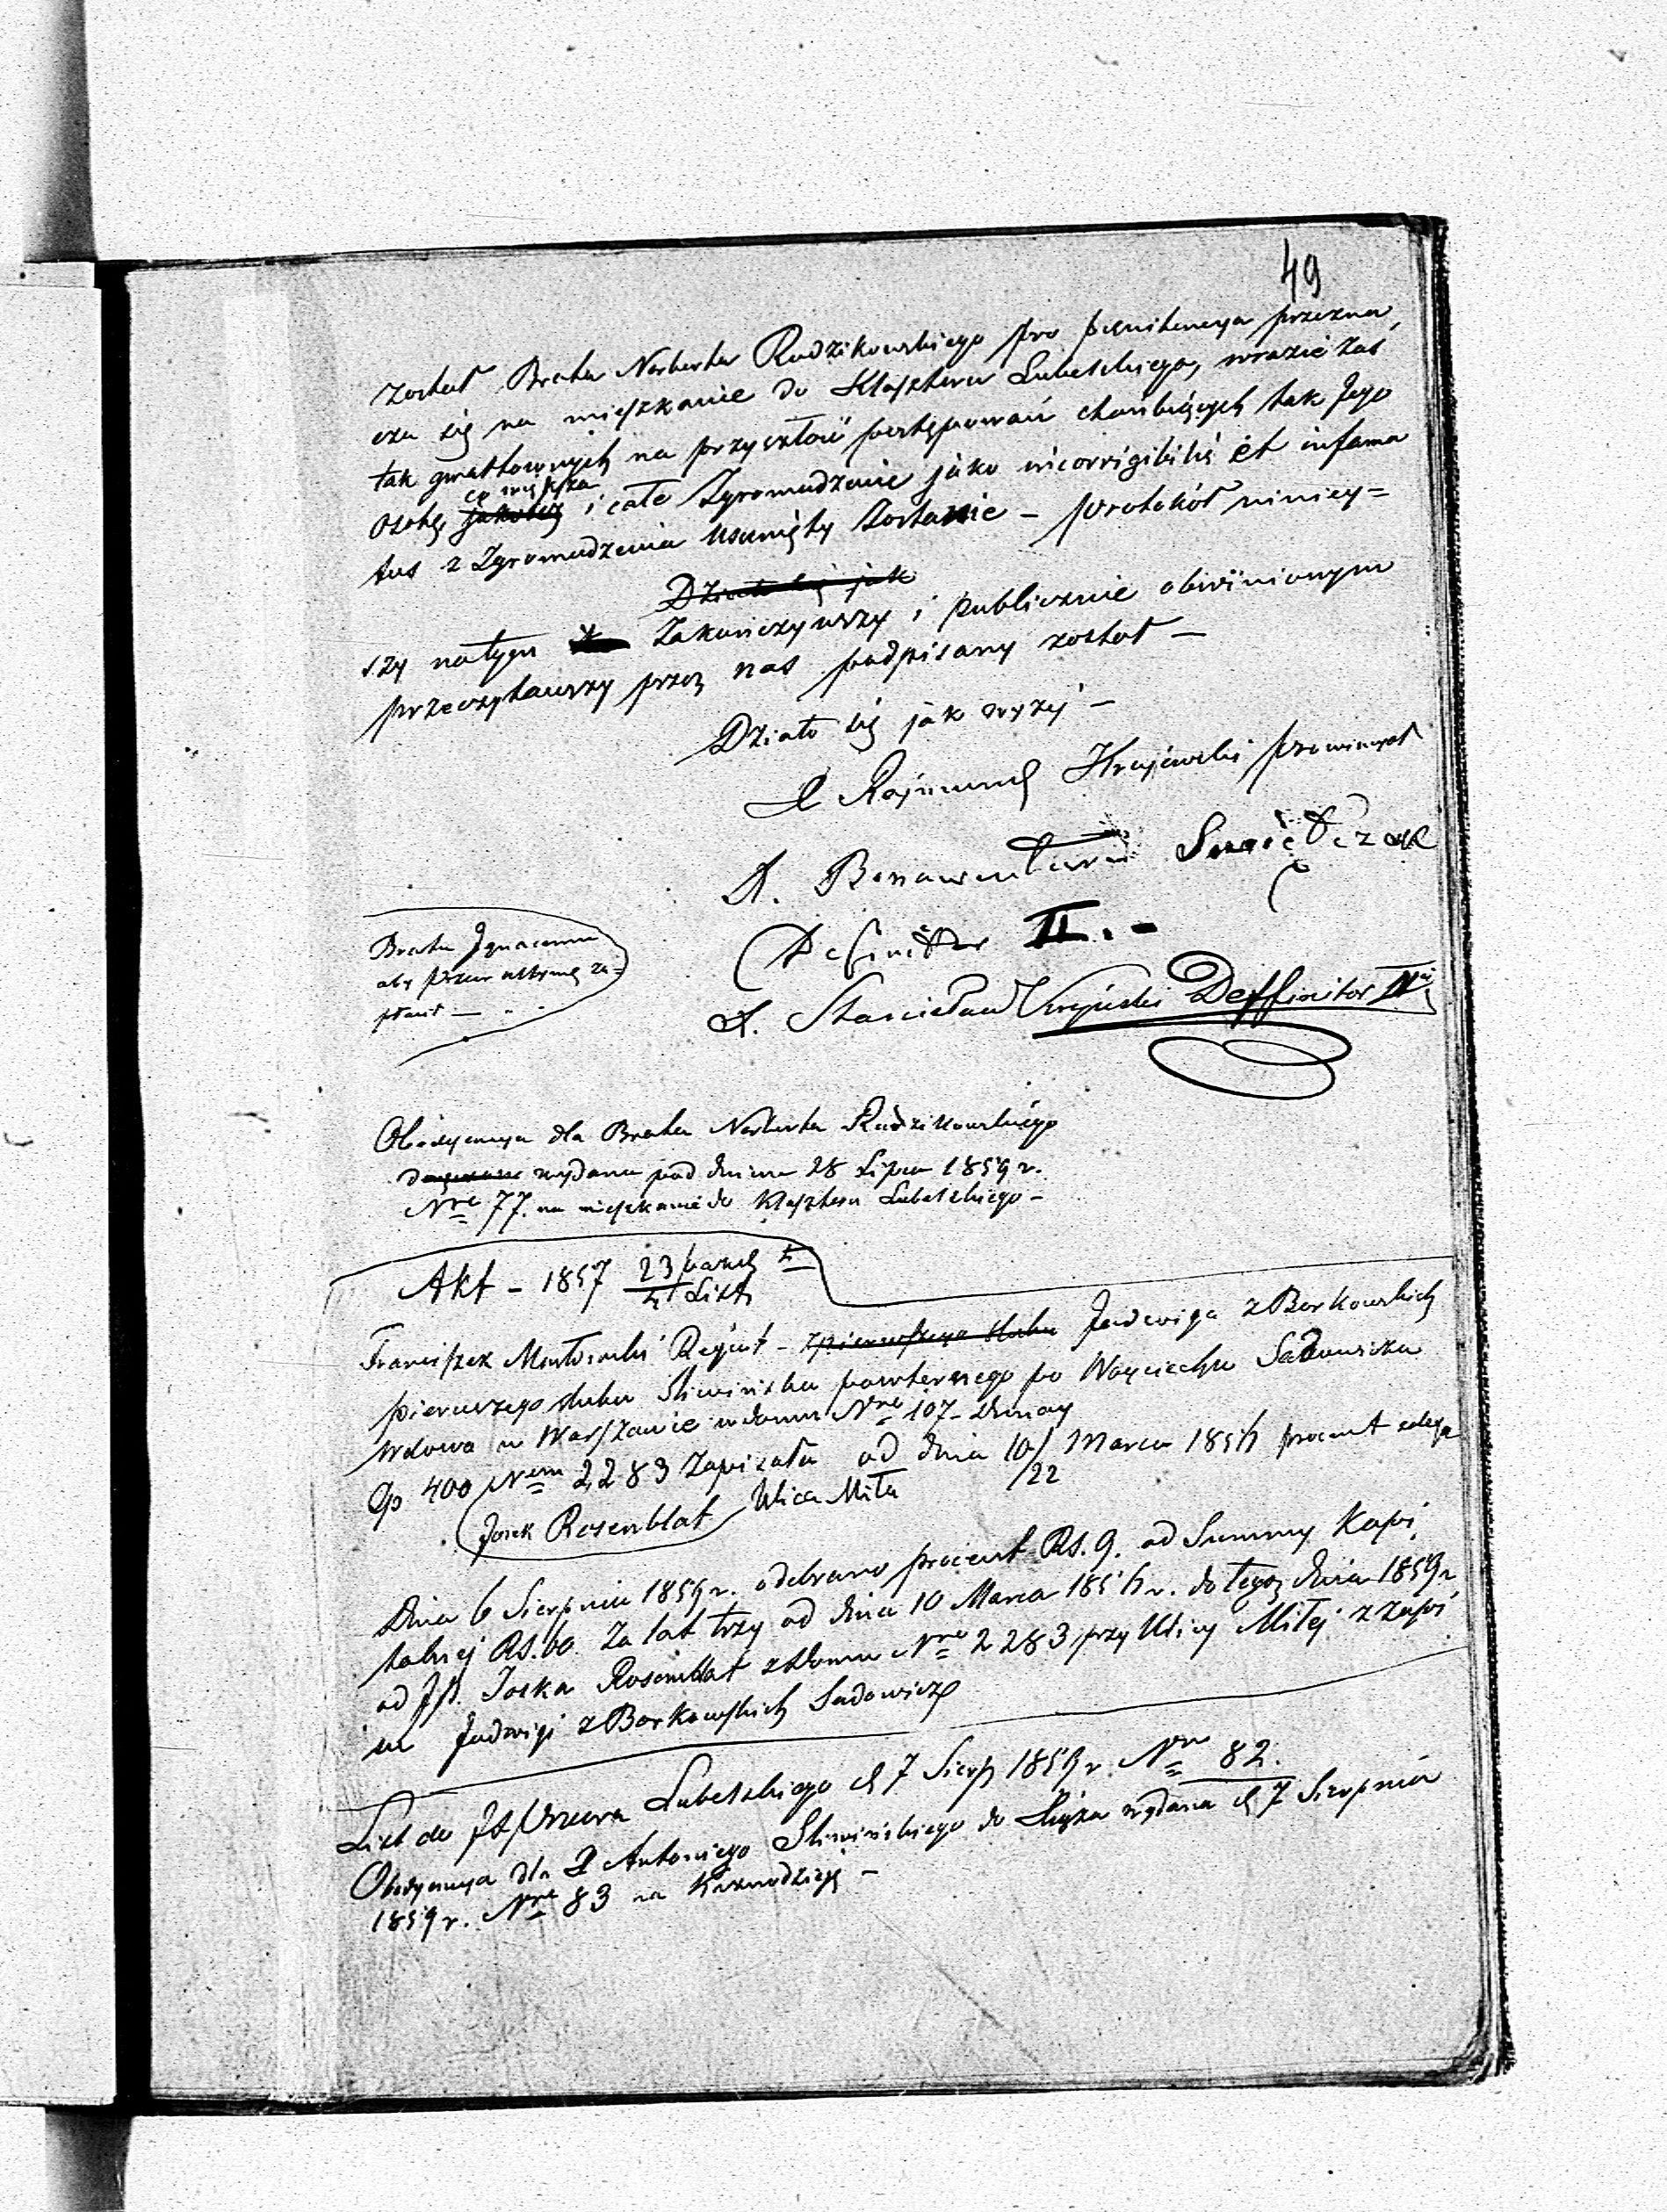 49
został Brata Norberta Rudzikowskiego pro penitencya przezna
cza się na mieszkanie do Klasztoru Lubelskiego, wrazie zaś
tak gwałtownych na przyszłość postępowań chańbiących tak Jego
co większa
Osobę jakoteż i całe Zgromadzenie jako incorrigibilis et infama
tus z Zgromadzenia usunięty zostanie – protokół niniey=
Działo się jak
szy natym zakończywszy i publicznie obwinionym
przeczytawszy przez nas podpisany został –
Działo się jak wyżej –
X Rajmund Krajewski prowincyał
X. Bonawentura
Definitor II. –
X. Stanisław Deffinitor
Brata Ignacemu
aby
Obedyencya dla Brata Norberta Rudzikowskiego
wydana pod dniem 28 Lipca 1859 r.
Nre 77. na mieszkanie do Klasztoru Lubelskiego –
Akt – 1857 23
Franciszek Rejent – z pierwszego ślubu Jadwiga z Borkowskich
pierwszego ślubu Sliwińska powternego po Woyciechu Sadowiczu
wdowa w Warszawie w domu Nre 107 – Dunay
400 Nem 2283 zapisała od dnia 10/22 Marca 1856 procent zalega
Josek Rosenblat Ulica Miła
Dnia 6 Sierpnia 1859 r. odebrano procent Rs. 9. od Summy Kapi
talnej Rs. 60. za lat trzy od dnia 10 Marca 1856 r. do tegoż dnia 1859 r.
od JP. Joska Rosenblat z domu Nre 2283 przy Ulicy Miłej z zapi
su Jadwigi z Borkowskich Sadowicz
List do JX Lubelskiego d 7 Sierp 1859 r. Nre 82.
Obedyencya dla X Antoniego Sliwińskiego do wydana d 7 Sierpnia
1859 r. Nre 83 na Kaznodzieję –